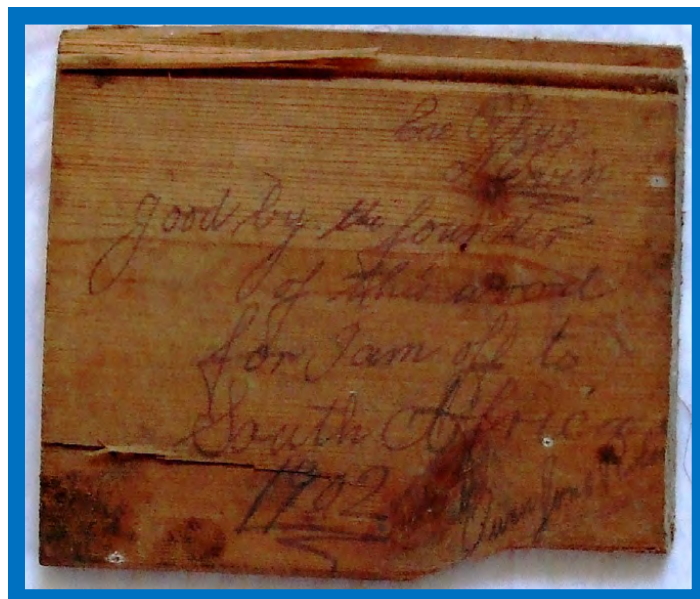 good by the founder
of this wood
for I am off to
South Africa
1902
Owen Jones